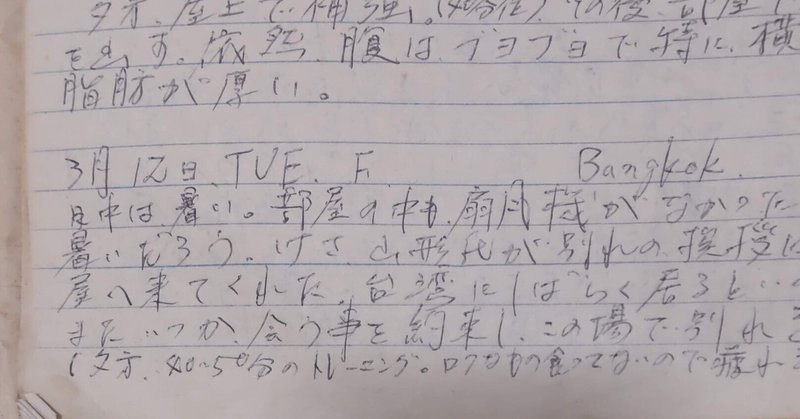 夕方、屋上で補強。(40分位)その後、部屋で
を出す。依然、腹はブヨブヨで特に、横
脂肪が厚い。
3月12日.TUE. F. Bangkok.
日中は暑い。部屋の中も扇風機がなかった
暑いだろう。けさ、山形氏が別れの挨拶に
屋へ来てくれた。台湾にしばらく居るとい
またいつか、会う事を約束し、この場で別れ
(夕方、40~50分のトレーニング。ロクなもの食ってないので疲れ